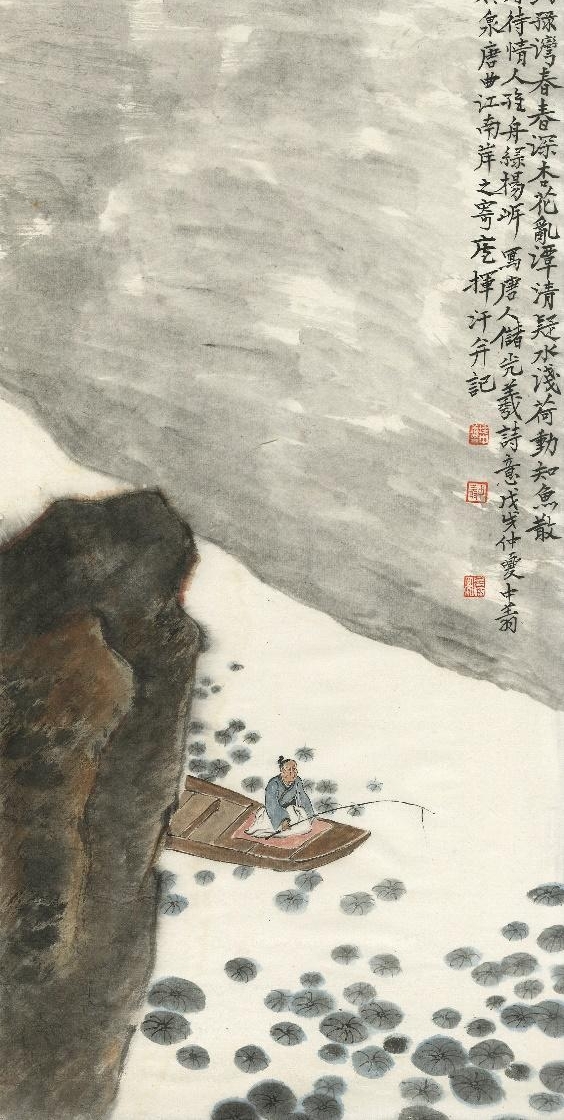 綠灣春春深杏花亂潭清疑水淺荷動知魚散
待情人維舟綠楊岸寫唐人儲光羲詩意戊戌仲夏中翁
泉唐曲江南岸之寄庐揮汗并記